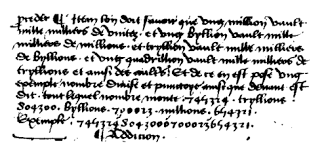 preder ¶ Item lon doit sauoir que ung million vault
mille milliers de unitez · et ung byllion vault mille
milliers de millions · et tryllion vault mille milliers
de byllions · et ung quadrillion vault mille milliers de
tryllions et ainsi des aultres · Et de ce en est pose ung
exemple nombre diuise et punctoye ainsi que deuant est
dit · tout lequel nombre monte · 745324 · tryllions ·
804300 · byllions · 700023 · millions · 654321 ·
Exemple · 745324.804300.700023.654321 ·
¶ Addicion ·